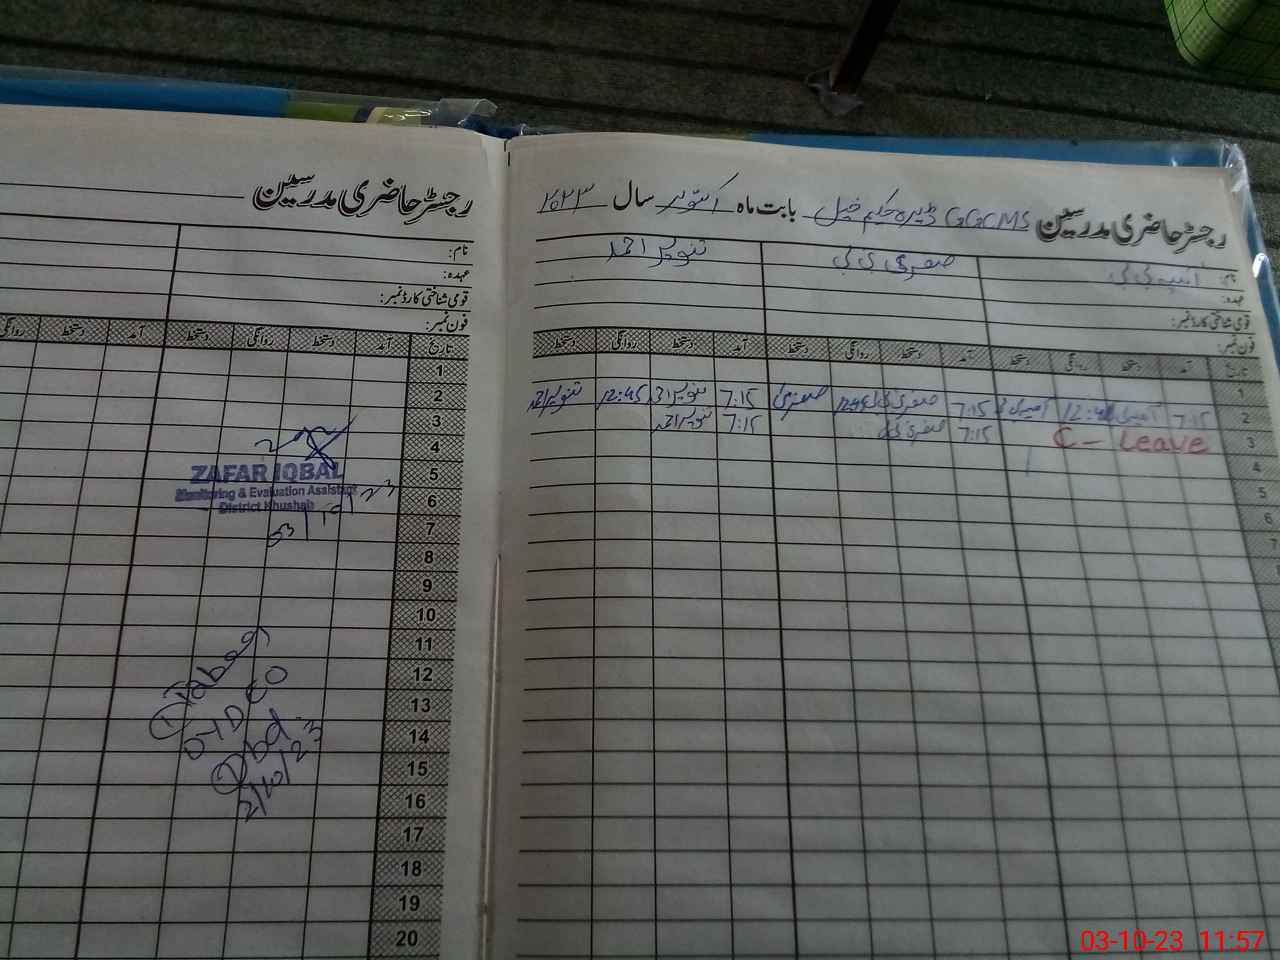 رجسٹر حاضری مدرسین GGCMS ڈیرہ حکم خیل بابت ماہ اکتوبر سال ۲۰۲۳
نام:
صغریٰ بی بی
تنویر احمد
عہدہ:
قومی شناختی کارڈ نمبر:
فون نمبر:
تاریخ آمد دستخط روانگی دستخط آمد دستخط روانگی دستخط آمد دستخط روانگی دستخط
1
2 7:15 7:15 صغریٰ بی بی صغریٰ 7:15 تنویر احمد 12:45 تنویر احمد
3 C - Leave 7:15 صغریٰ بی بی 7:15 تنویر احمد
4
5
6
7
رجسٹر حاضری مدرسین
نام:
عہدہ:
قومی شناختی کارڈ نمبر:
فون نمبر:
تاریخ آمد دستخط روانگی دستخط آمد دستخط روانگی
1
2
3
4
5
6
7
8
9
10
11
12
13
14
15
16
17
18
19
20
ZAFAR IQBAL
Monitoring & Evaluation Assistant
District Khushab
03/10/23
2/10/23
03-10-23 11:57